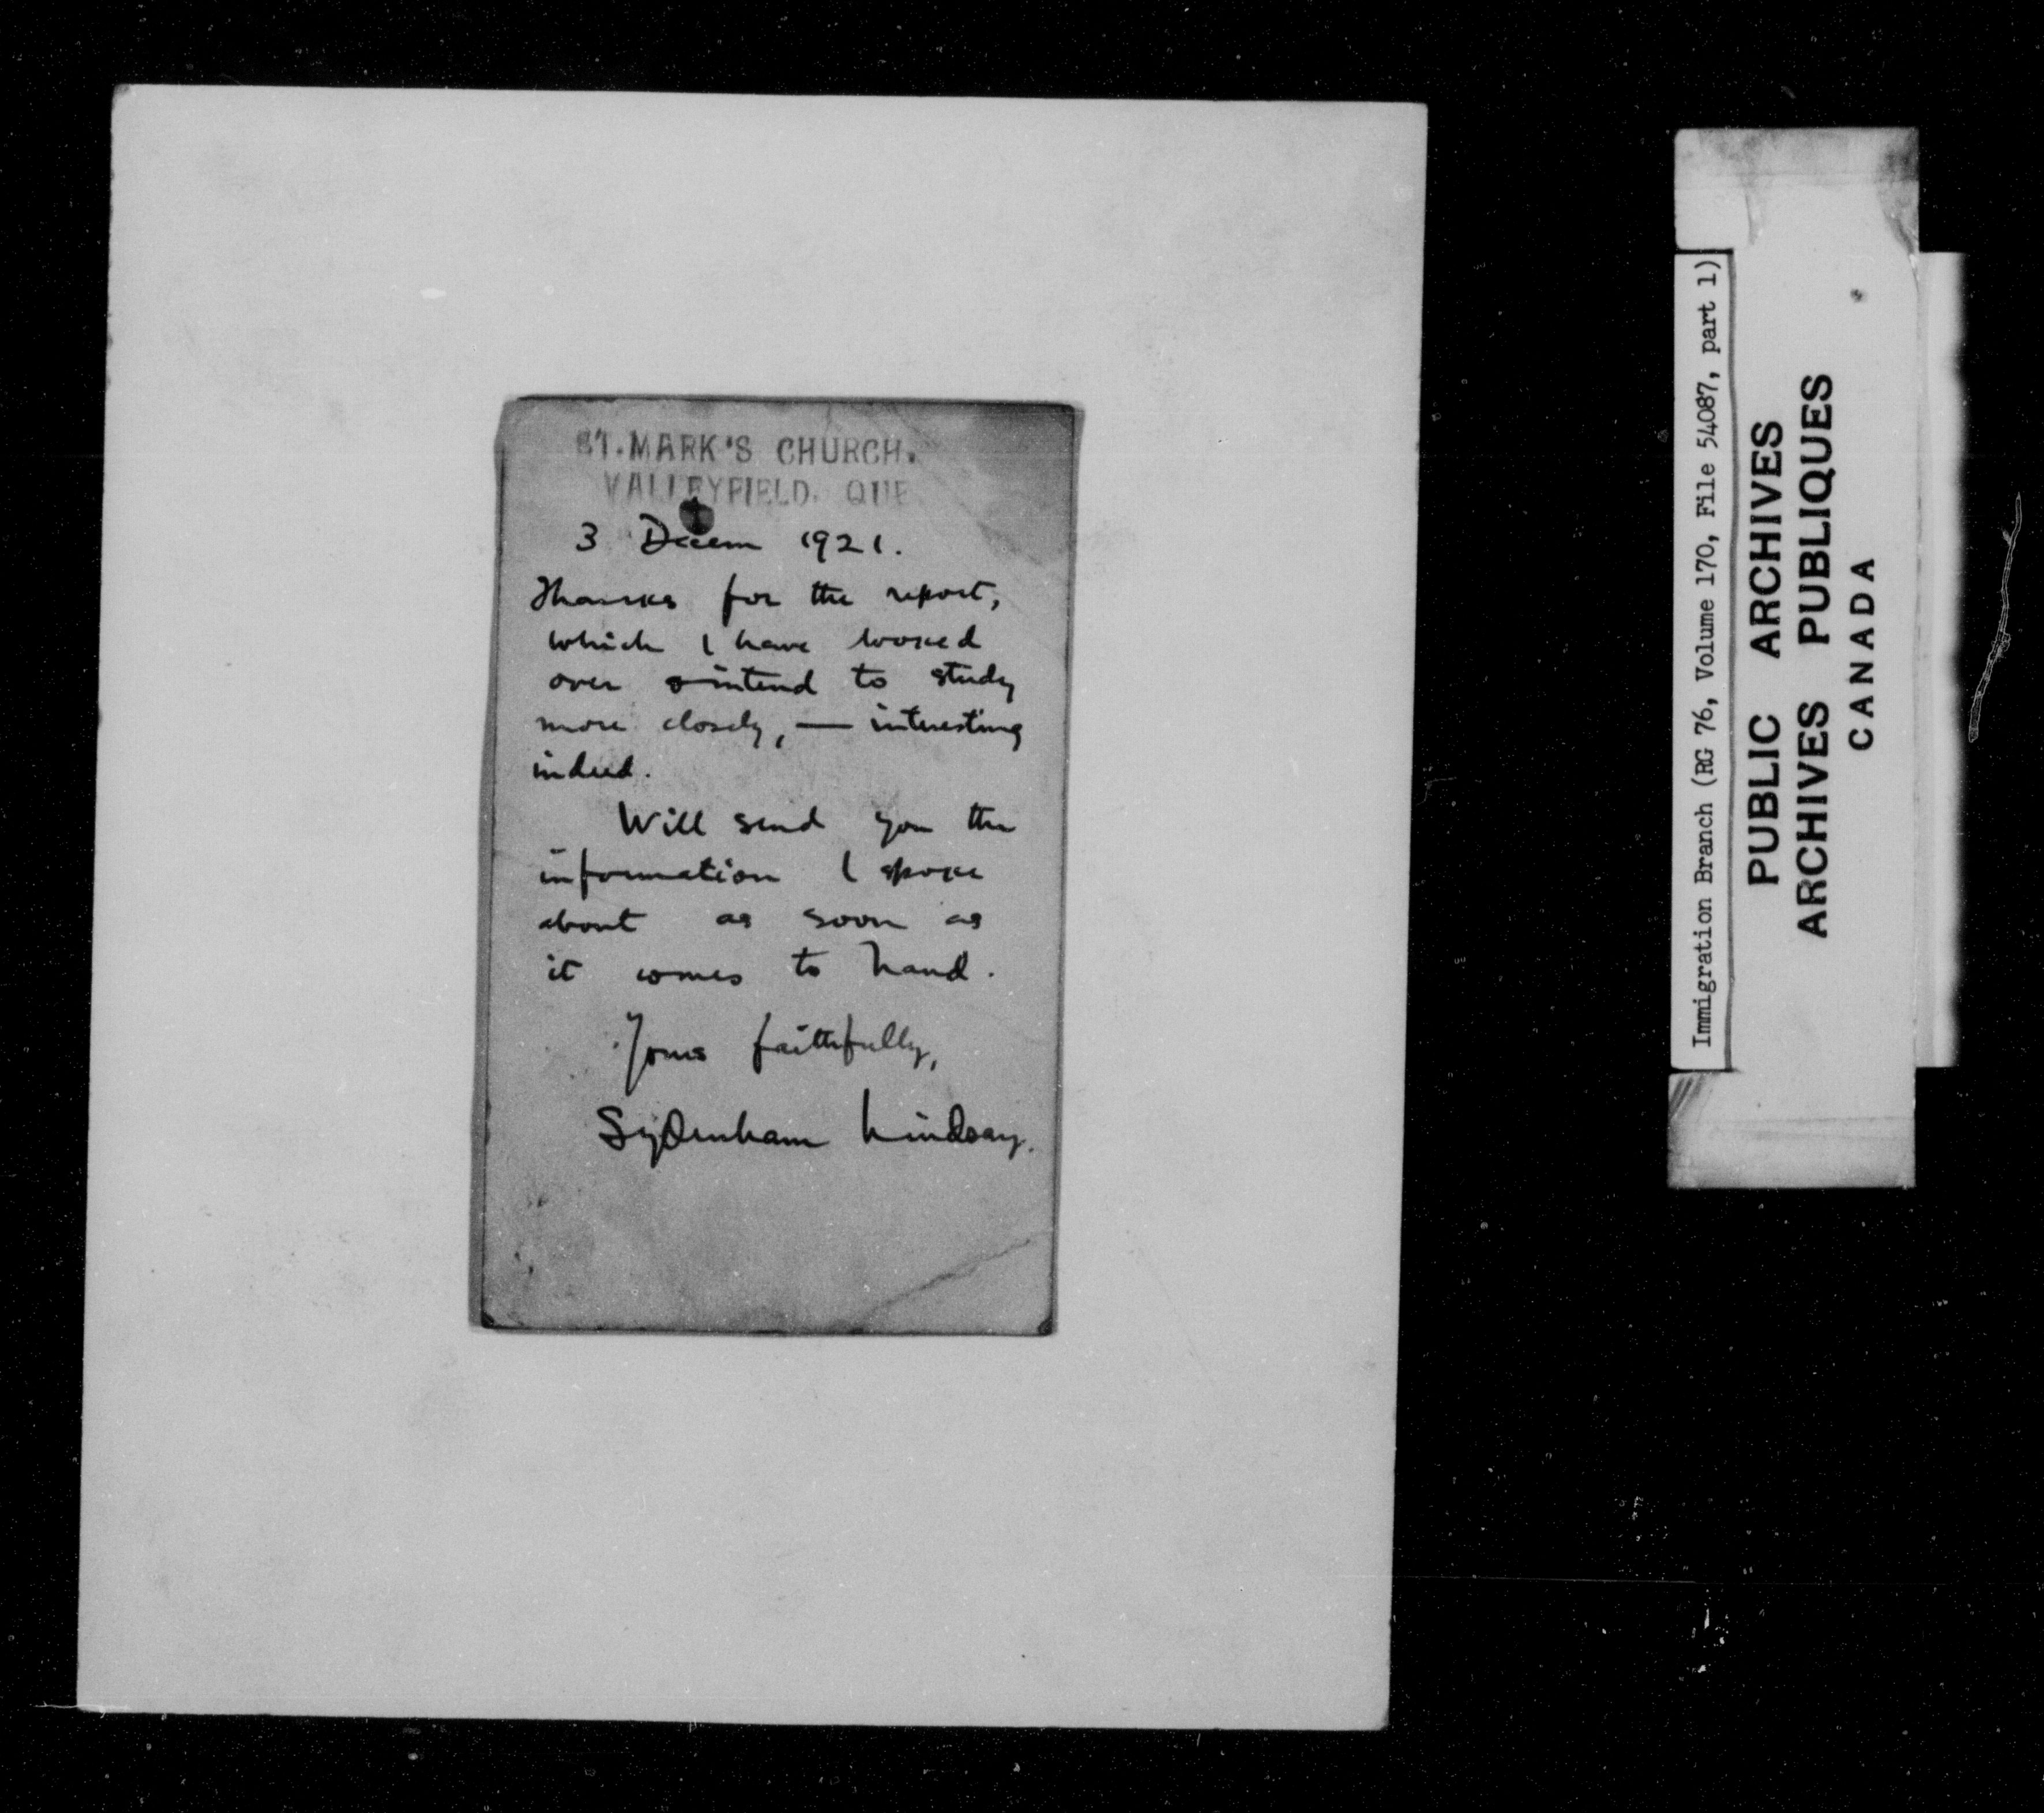 ST. MARK'S CHURCH.
VALLEYFIELD. QUE
3 Decem 1921.
Thanks for the report,
which I have looked
over & intend to study
more closely, — interesting
indeed.
Will send you the
information I spoke
about as soon as
it comes to hand.
Yours faithfully,
Sydenham Lindsay.
Immigration Branch (RG 76, Volume 170, File 54087, part 1)
PUBLIC ARCHIVES
ARCHIVES PUBLIQUES
CANADA